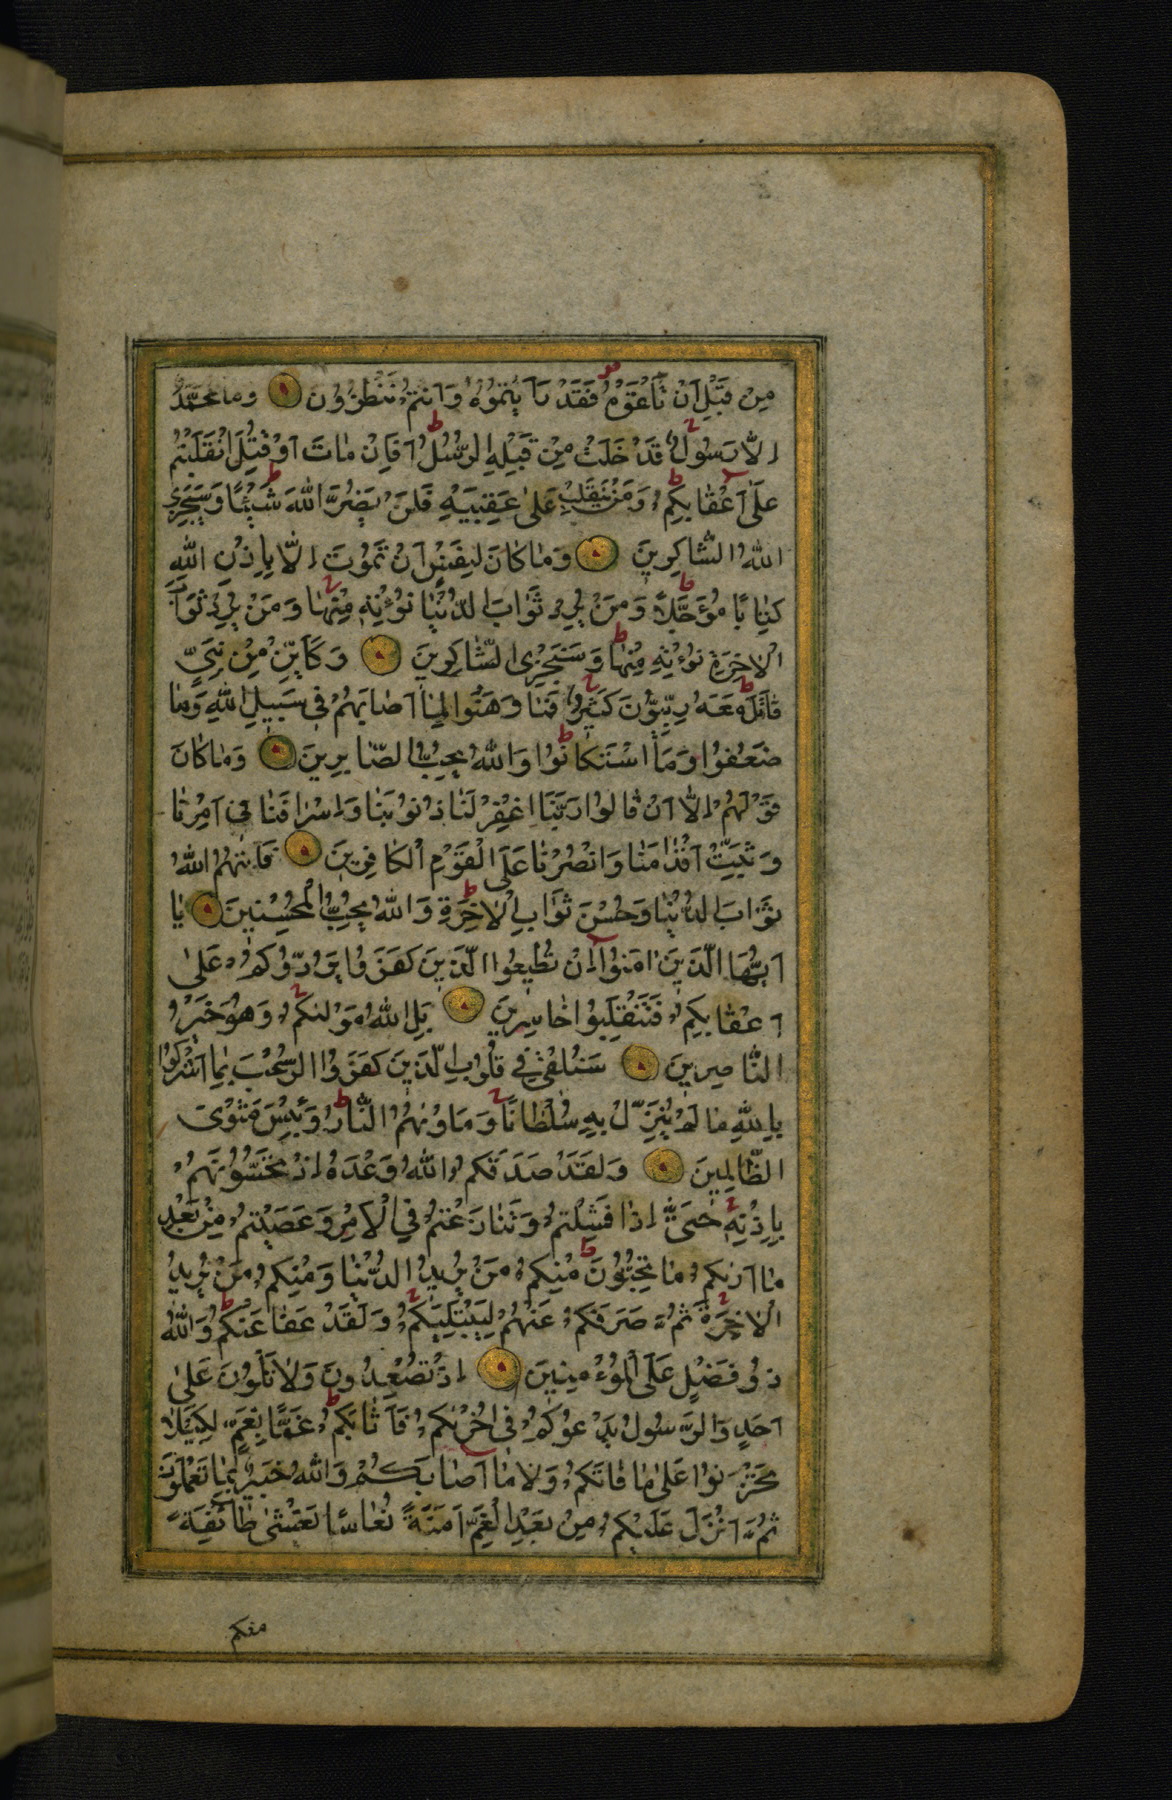 مِنْ قَبْلِ اَنْ تَلْقَوْهُ فَقَدْ رَاَيْتُمُوْهُ وَاَنْتُمْ تَنْظُرُوْنَ وَمَا مُحَمَّدٌ
اِلَّا رَسُوْلٌ قَدْ خَلَتْ مِنْ قَبْلِهِ الرُّسُلُ اَفَاِنْ مَاتَ اَوْ قُتِلَ انْقَلَبْتُمْ
عَلٰى اَعْقَابِكُمْ وَمَنْ يَنْقَلِبْ عَلٰى عَقِبَيْهِ فَلَنْ يَضُرَّ اللّٰهَ شَيْئًا وَسَيَجْزِى
اللّٰهُ الشَّاكِرِينَ وَمَا كَانَ لِنَفْسٍ اَنْ تَمُوْتَ اِلَّا بِاِذْنِ اللّٰهِ
كِتَابًا مُؤَجَّلًا وَمَنْ يُرِدْ ثَوَابَ الدُّنْيَا نُؤْتِهِ مِنْهَا وَمَنْ يُرِدْ ثَوَابَ
الْاٰخِرَةِ نُؤْتِهِ مِنْهَا وَسَنَجْزِى الشَّاكِرِينَ وَكَاَيِّنْ مِنْ نَبِيٍّ
قَاتَلَ مَعَهُ رِبِّيُّوْنَ كَثِيْرٌ فَمَا وَهَنُوا لِمَا اَصَابَهُمْ فِى سَبِيلِ اللّٰهِ وَمَا
ضَعُفُوا وَمَا اسْتَكَانُوا وَاللّٰهُ يُحِبُّ الصَّابِرِينَ وَمَا كَانَ
قَوْلَهُمْ اِلَّا اَنْ قَالُوا رَبَّنَا اغْفِرْ لَنَا ذُنُوبَنَا وَاِسْرَافَنَا فِى اَمْرِنَا
وَثَبِّتْ اَقْدَامَنَا وَانْصُرْنَا عَلَى الْقَوْمِ الْكَافِرِينَ فَاٰتٰهُمُ اللّٰهُ
ثَوَابَ الدُّنْيَا وَحُسْنَ ثَوَابِ الْاٰخِرَةِ وَاللّٰهُ يُحِبُّ الْمُحْسِنِينَ يَا
اَيُّهَا الَّذِينَ اٰمَنُوا اِنْ تُطِيعُوا الَّذِينَ كَفَرُوا يَرُدُّوكُمْ عَلٰى
اَعْقَابِكُمْ فَتَنْقَلِبُوا خَاسِرِينَ بَلِ اللّٰهُ مَوْلٰىكُمْ وَهُوَ خَيْرُ
النَّاصِرِينَ سَنُلْقِى فِى قُلُوبِ الَّذِينَ كَفَرُوا الرُّعْبَ بِمَا اَشْرَكُوا
بِاللّٰهِ مَا لَمْ يُنَزِّلْ بِهِ سُلْطَانًا وَمَاْوٰىهُمُ النَّارُ وَبِئْسَ مَثْوَى
الظَّالِمِينَ وَلَقَدْ صَدَقَكُمُ اللّٰهُ وَعْدَهُ اِذْ تَحُسُّوْنَهُمْ
بِاِذْنِهِ حَتّٰى اِذَا فَشِلْتُمْ وَتَنَازَعْتُمْ فِى الْاَمْرِ وَعَصَيْتُمْ مِنْ بَعْدِ
مَا اَرٰىكُمْ مَا تُحِبُّوْنَ مِنْكُمْ مَنْ يُرِيدُ الدُّنْيَا وَمِنْكُمْ مَنْ يُرِيدُ
الْاٰخِرَةَ ثُمَّ صَرَفَكُمْ عَنْهُمْ لِيَبْتَلِيَكُمْ وَلَقَدْ عَفَا عَنْكُمْ وَاللّٰهُ
ذُو فَضْلٍ عَلَى الْمُؤْمِنِينَ اِذْ تُصْعِدُونَ وَلَا تَلْوُنَ عَلٰى
اَحَدٍ وَالرَّسُولُ يَدْعُوكُمْ فِى اُخْرٰىكُمْ فَاَثَابَكُمْ غَمًّا بِغَمٍّ لِكَيْلَا
تَحْزَنُوا عَلٰى مَا فَاتَكُمْ وَلَا مَا اَصَابَكُمْ وَاللّٰهُ خَبِيرٌ بِمَا تَعْمَلُوْنَ
ثُمَّ اَنْزَلَ عَلَيْكُمْ مِنْ بَعْدِ الْغَمِّ اَمَنَةً نُعَاسًا يَغْشٰى طَائِفَةً
منكم